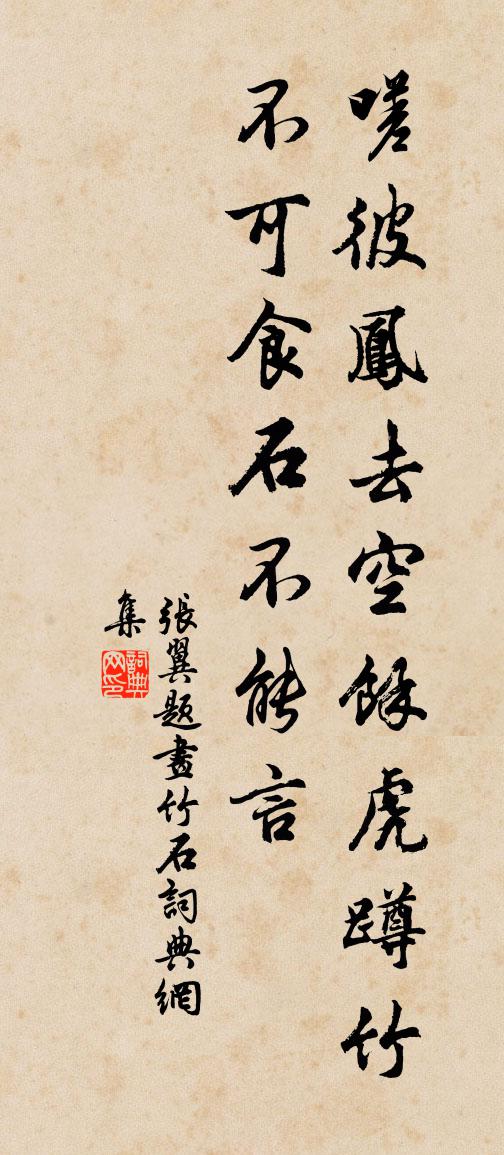 嗟彼鳳去空餘虎蹲竹
不可食石不能言
張翼題畫竹石詞典網
集
詞典
网印